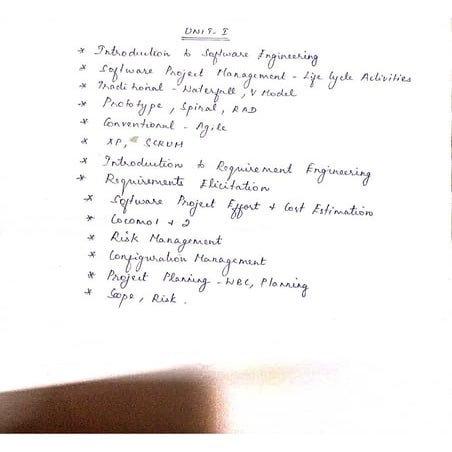 UNIT-I
* Introduction to Software Engineering
* Software Project Management - Life Cycle Activities
* Traditional - Waterfall, V Model
* Prototype, Spiral, RAD
* Conventional - Agile
* XP, SCRUM
* Introduction to Requirement Engineering
* Requirements Elicitation
* Software Project Effort & Cost Estimation
* Cocomo 1 & 2
* Risk Management
* Configuration Management
* Project Planning - WBC, Planning
* Scope, Risk.